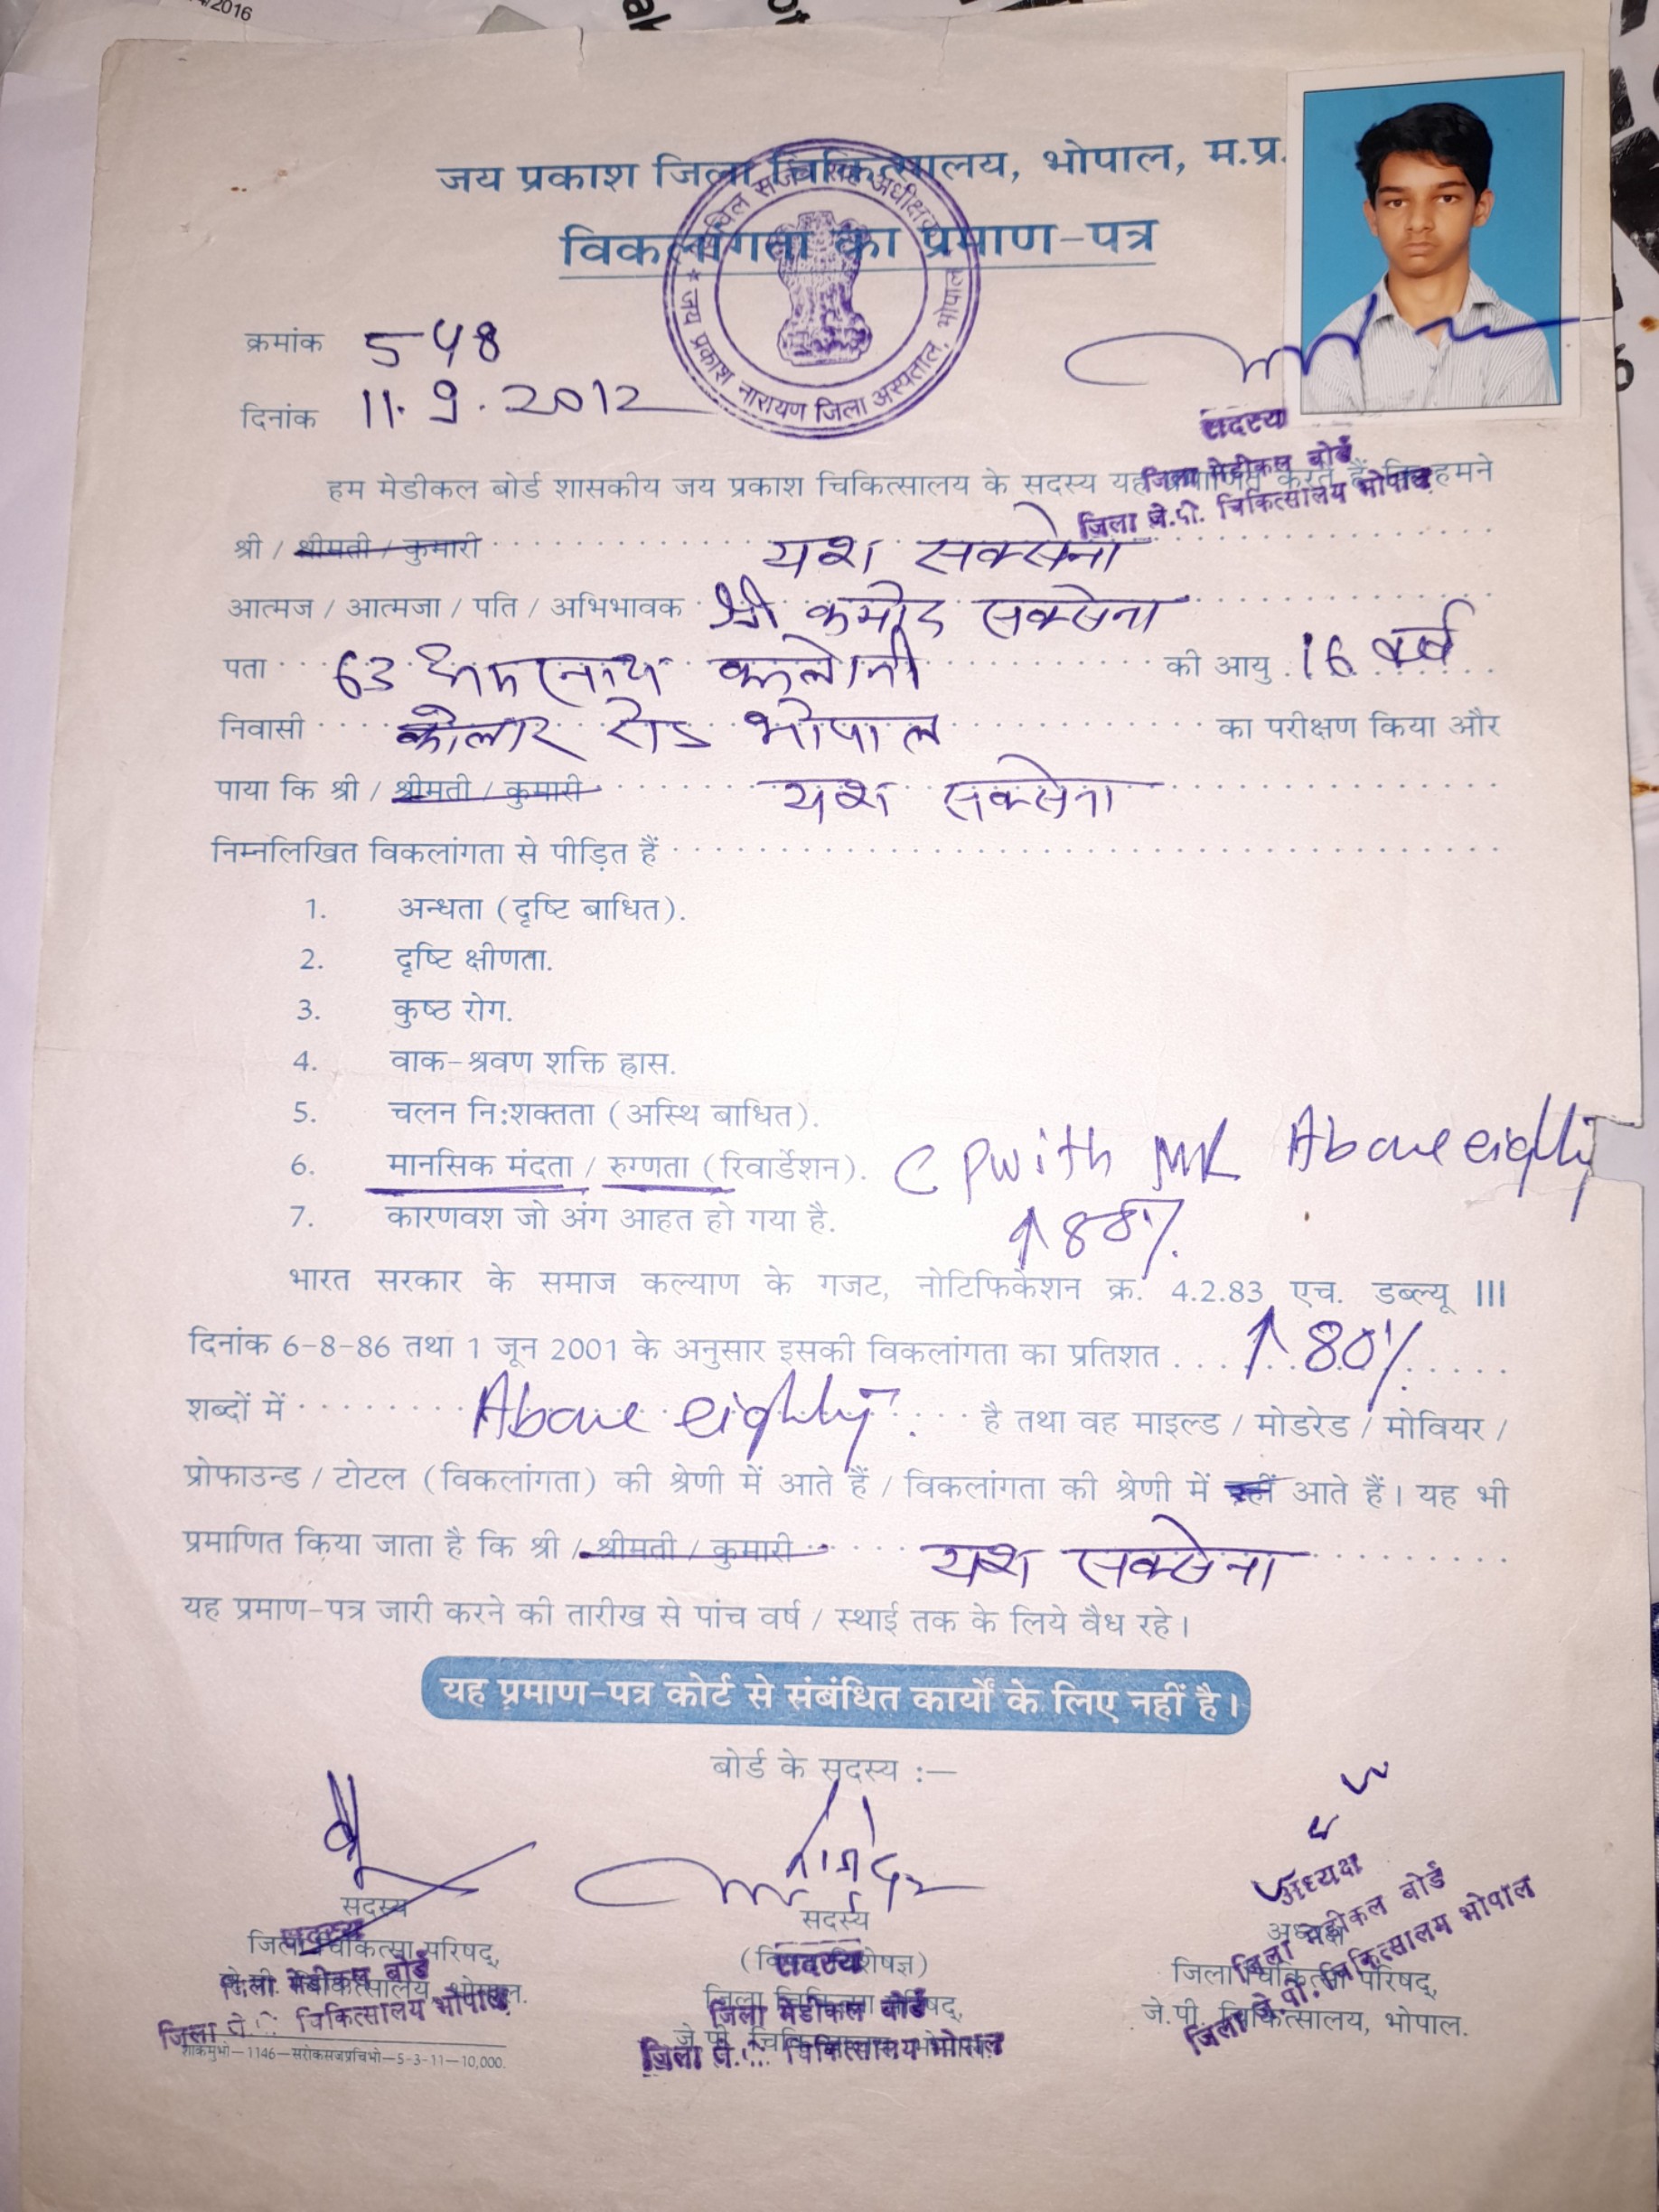 4/2016
जय प्रकाश जिला चिकित्सालय, भोपाल, म.प्र.
विकलांगता का प्रमाण-पत्र
जय प्रकाश नारायण जिला अस्पताल, भोपाल
क्रमांक 548
दिनांक 11.9.2012
सदस्य
जिला मेडीकल बोर्ड
जिला जे.पी. चिकित्सालय भोपाल
हम मेडीकल बोर्ड शासकीय जय प्रकाश चिकित्सालय के सदस्य यह प्रमाणित करते हैं कि हमने
श्री / श्रीमती / कुमारी यश सक्सेना
आत्मज / आत्मजा / पति / अभिभावक श्री कुमोद सक्सेना
पता 63 कालोनी की आयु 16 वर्ष
निवासी कोलार रोड भोपाल का परीक्षण किया और
पाया कि श्री / श्रीमती / कुमारी यश सक्सेना
निम्नलिखित विकलांगता से पीड़ित हैं
1. अन्धता (दृष्टि बाधित).
2. दृष्टि क्षीणता.
3. कुष्ठ रोग.
4. वाक-श्रवण शक्ति ह्रास.
5. चलन नि:शक्तता (अस्थि बाधित).
6. मानसिक मंदता / रुग्णता (रिवार्डेशन). CP with MR Above eighty
7. कारणवश जो अंग आहत हो गया है. ↑88%
भारत सरकार के समाज कल्याण के गजट, नोटिफिकेशन क्र. 4.2.83 एच. डब्ल्यू III
दिनांक 6-8-86 तथा 1 जून 2001 के अनुसार इसकी विकलांगता का प्रतिशत ↑80%
शब्दों में Above eighty है तथा वह माइल्ड / मोडरेड / मोवियर /
प्रोफाउन्ड / टोटल (विकलांगता) की श्रेणी में आते हैं / विकलांगता की श्रेणी में नहीं आते हैं। यह भी
प्रमाणित किया जाता है कि श्री / श्रीमती / कुमारी यश सक्सेना
यह प्रमाण-पत्र जारी करने की तारीख से पांच वर्ष / स्थाई तक के लिये वैध रहे।
यह प्रमाण-पत्र कोर्ट से संबंधित कार्यों के लिए नहीं है।
बोर्ड के सदस्य :—
सदस्य
जिला चिकित्सा परिषद्,
जे.पी. चिकित्सालय, भोपाल.
सदस्य
जिला मेडीकल बोर्ड
जिला चिकित्सालय भोपाल
शाकेमुभो—1146—सरोकसजप्रचिभो—5-3-11—10,000.
सदस्य
(विषय विशेषज्ञ)
जिला चिकित्सा परिषद्,
जे.पी. चिकित्सालय, भोपाल.
सदस्य
जिला मेडीकल बोर्ड
जिला चिकित्सालय भोपाल
अध्यक्ष
जिला चिकित्सा परिषद्,
जे.पी. चिकित्सालय, भोपाल.
अध्यक्ष
जिला मेडीकल बोर्ड
जिला जे.पी. चिकित्सालय भोपाल